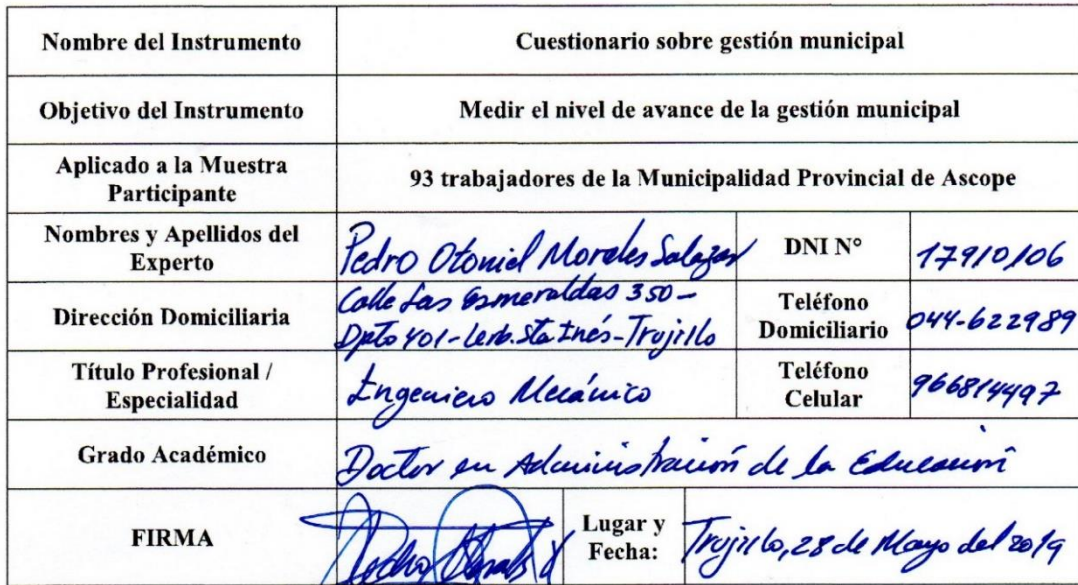 Nombre del Instrumento
Cuestionario sobre gestión municipal
Objetivo del Instrumento
Medir el nivel de avance de la gestión municipal
Aplicado a la Muestra
Participante
93 trabajadores de la Municipalidad Provincial de Ascope
Nombres y Apellidos del
Experto
Pedro Otoniel Morales Salazar
DNI N°
17910106
Dirección Domiciliaria
Calle Las Esmeraldas 350-
Dpto 401- Sta Inés-Trujillo
Teléfono
Domiciliario
044-622989
Título Profesional /
Especialidad
Ingeniero Mecánico
Teléfono
Celular
966814497
Grado Académico
Doctor en Administración de la Educación
FIRMA
Lugar y
Fecha:
Trujillo, 28 de Mayo del 2019